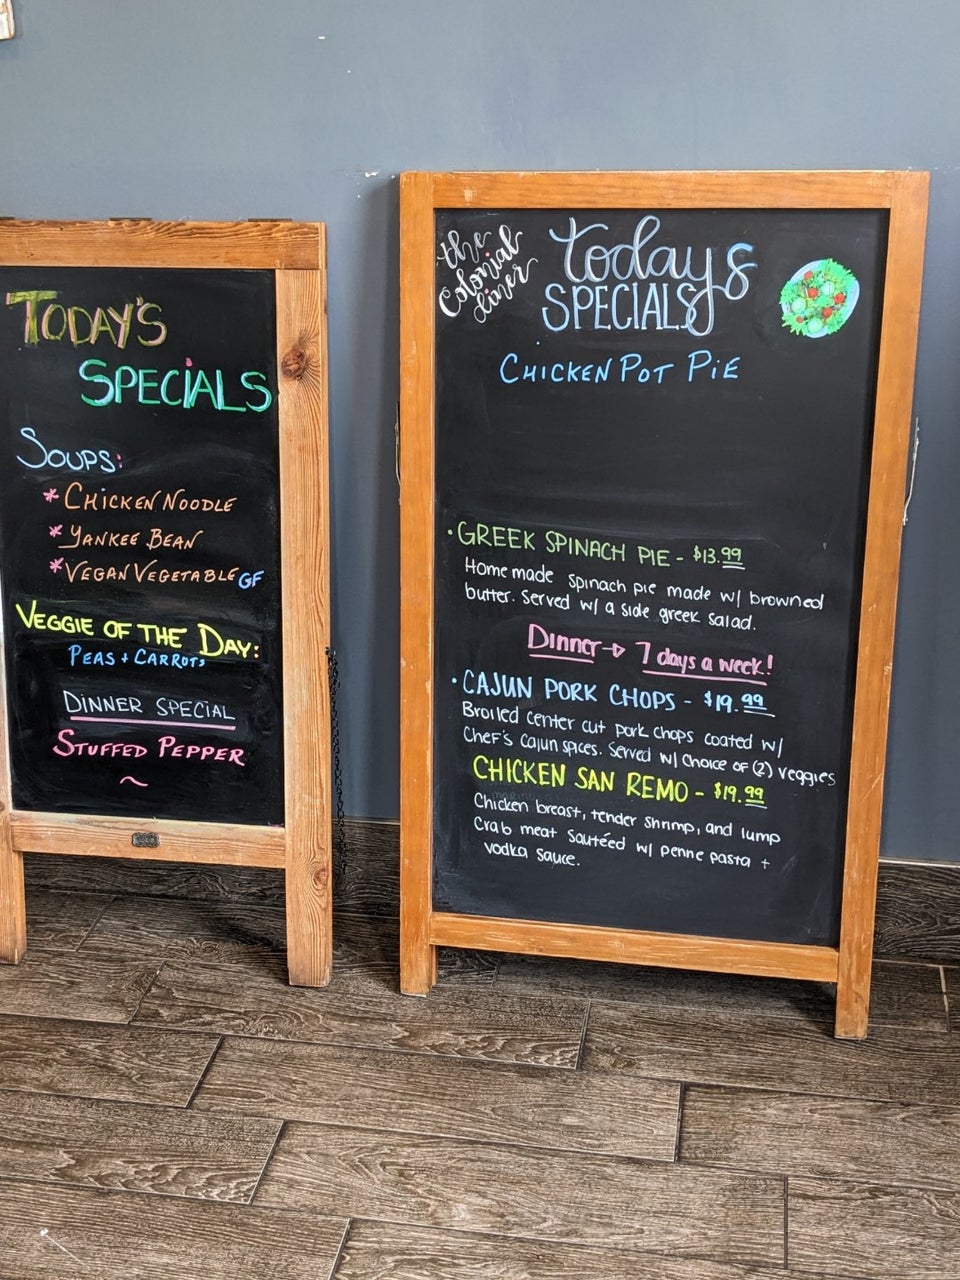 TODAY'S
SPECIALS
SOUPS:
* CHICKEN NOODLE
* YANKEE BEAN
* VEGAN VEGETABLE GF
VEGGIE OF THE DAY:
PEAS + CARROTS
DINNER SPECIAL
STUFFED PEPPER
~
the
Colonial
diner
todays
SPECIALS
CHICKEN POT PIE
• GREEK SPINACH PIE - $13.99
Homemade spinach pie made w/ browned
butter. Served w/ a side greek salad.
Dinner → 7 days a week!
• CAJUN PORK CHOPS - $19.99
Broiled center cut pork chops coated w/
Chef's Cajun spices. Served w/ choice of (2) veggies
CHICKEN SAN REMO - $19.99
Chicken breast, tender shrimp, and lump
Crab meat Sautéed w/ penne pasta +
vodka sauce.